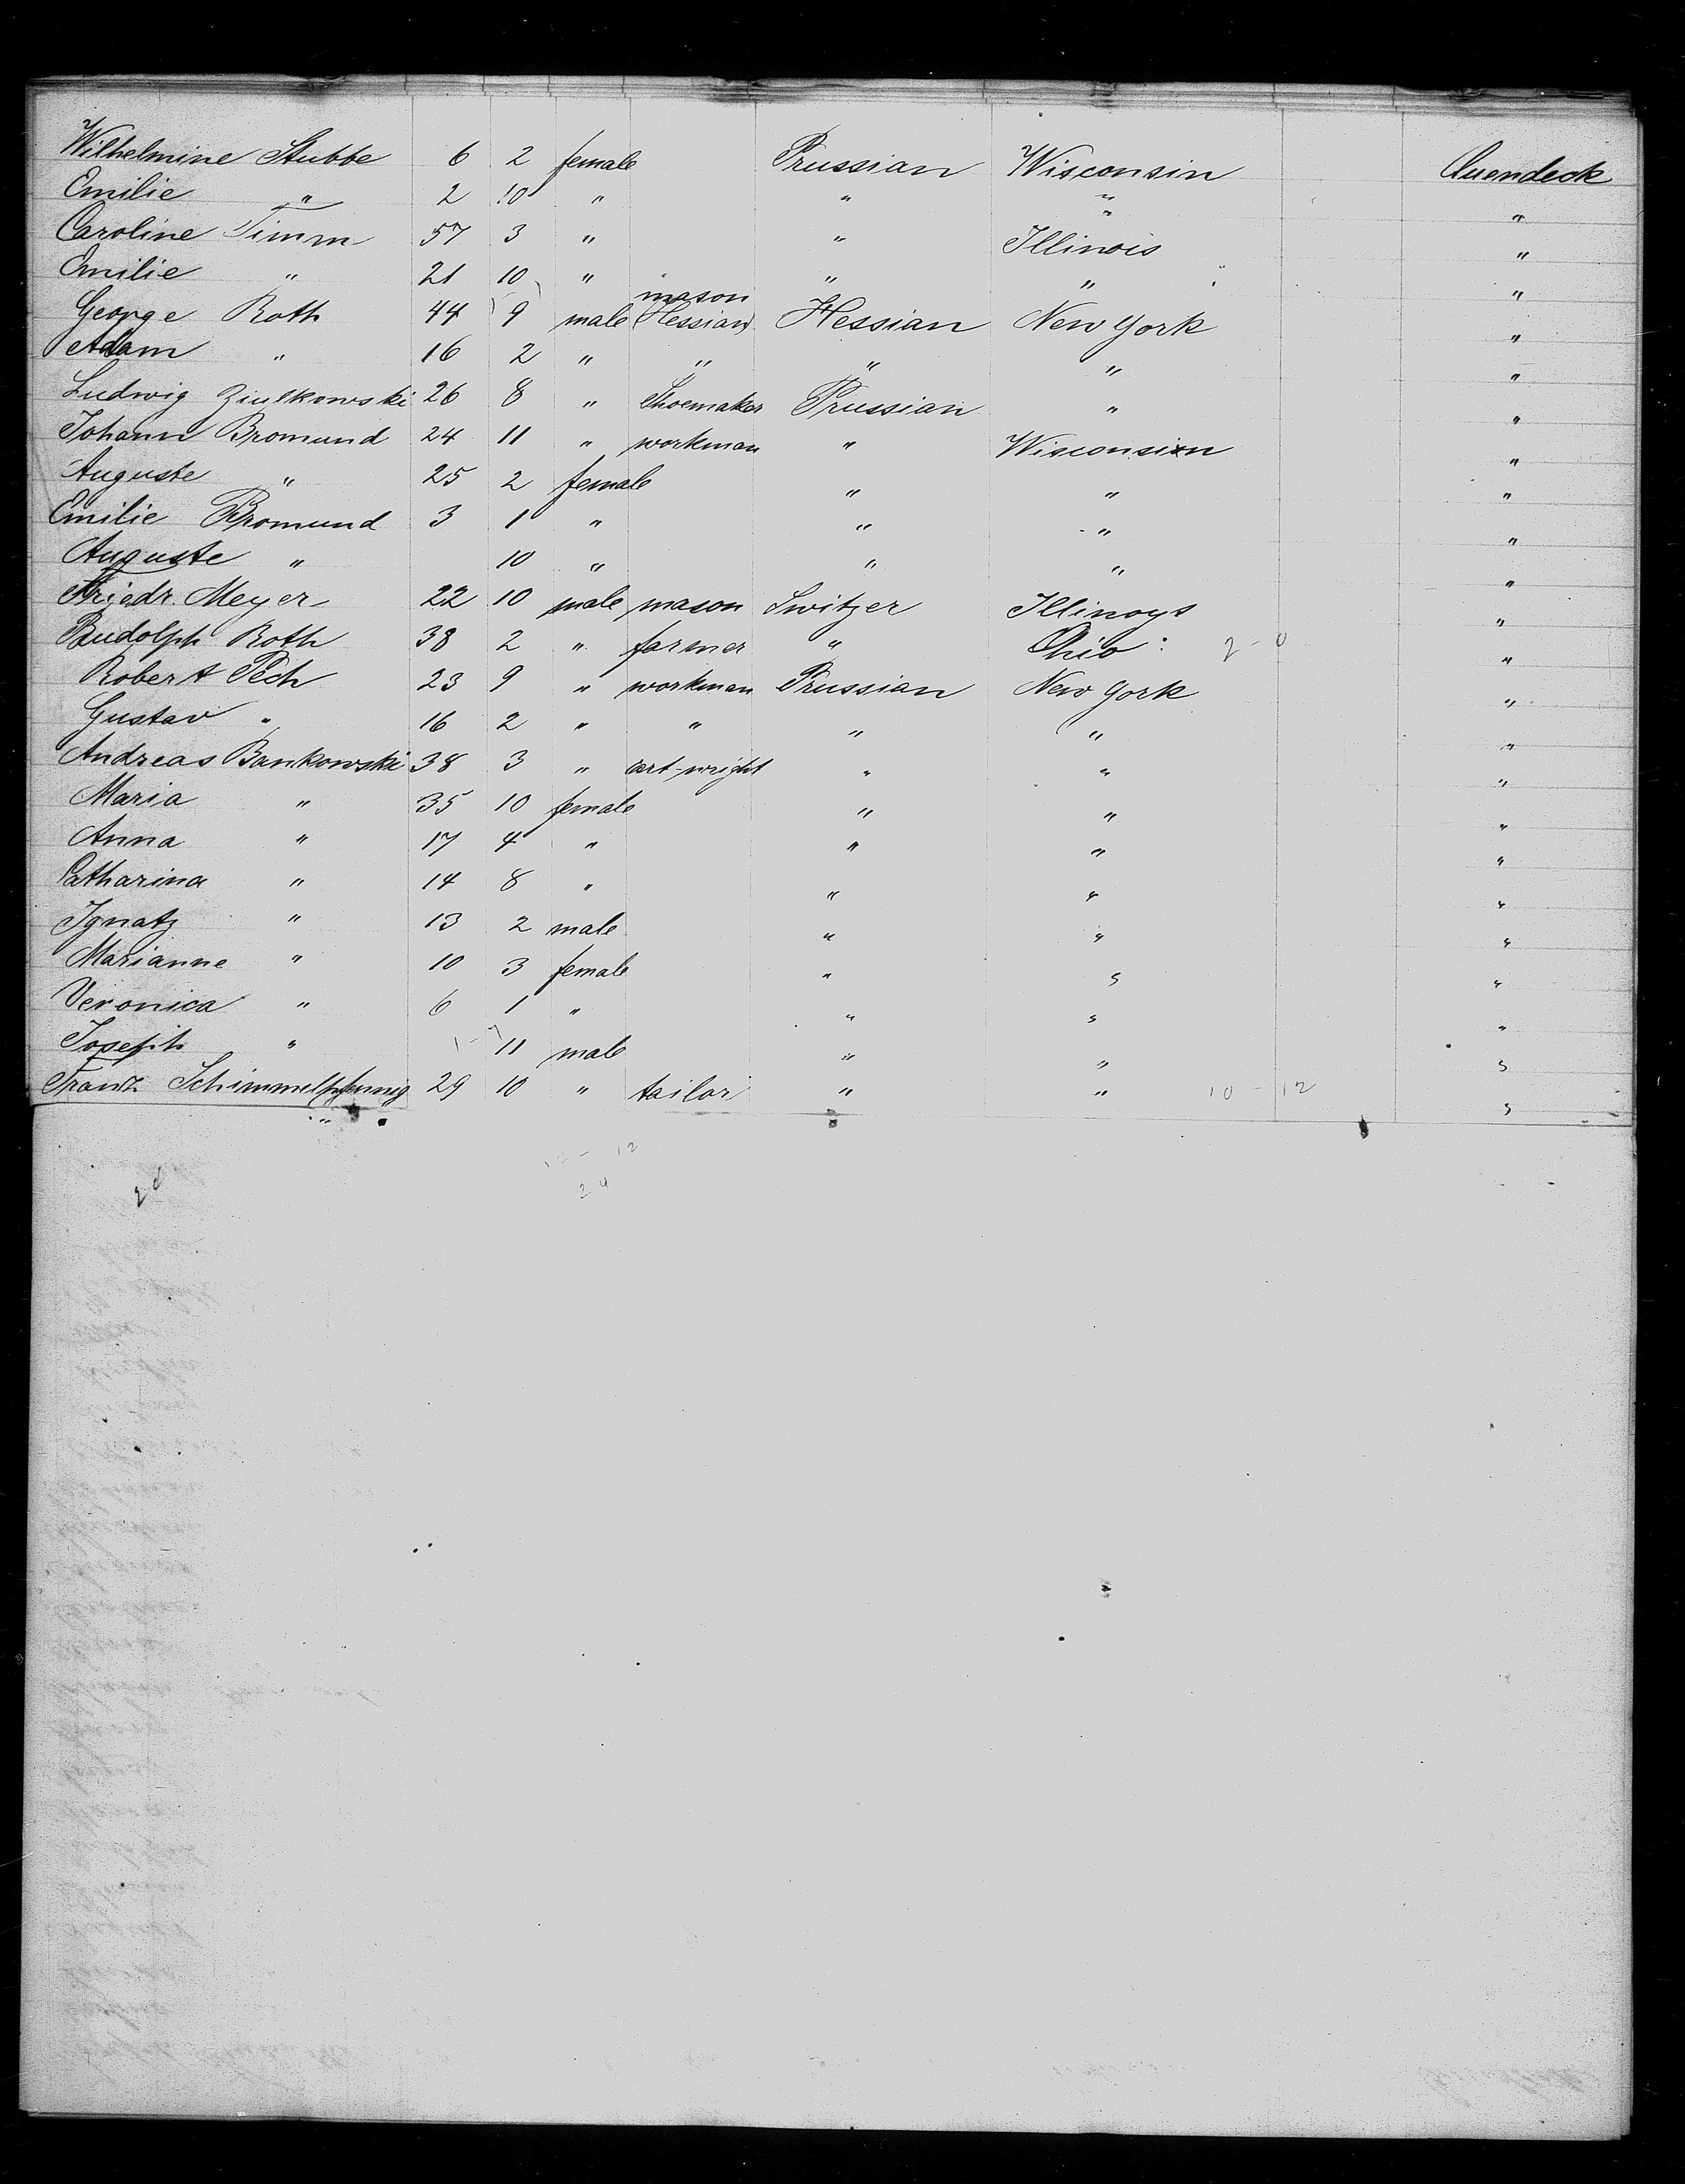 Wilhelmine Stubbe 6 2 female Prussian Wisconsin Quendeck
Emilie " 2 10 " " " "
Caroline Timm 57 3 " " Illinois "
Emilie " 21 10 " " " "
mason
George Roth 44 9 male Hessian Hessian New York "
Adam " 16 2 " " " " "
Ludwig Ziulkowski 26 8 " Shoemaker Prussian " "
Johann Bromund 24 11 " workman " Wisconsin "
Auguste " 25 2 female " " "
Emilie Bromund 3 1 " " " "
Auguste " 10 " " " "
Friedr. Meyer 22 10 male mason Switzer Illinoys "
Rudolph Roth 38 2 " farmer " Ohio "
Robert Pech 23 9 " workman Prussian New York "
Gustav " 16 2 " " " " "
Andreas Bankowski 38 3 " cart-wright " " "
Maria " 35 10 female " " "
Anna " 17 4 " " " "
Catharina " 14 8 " " " "
Ignatz " 13 2 male " " "
Marianne " 10 3 female " " "
Veronica " 6 1 " " " "
Joseph " 11 male " " "
Franz Schimmelpfennig 29 10 " tailor " " 10-12 "
12
24